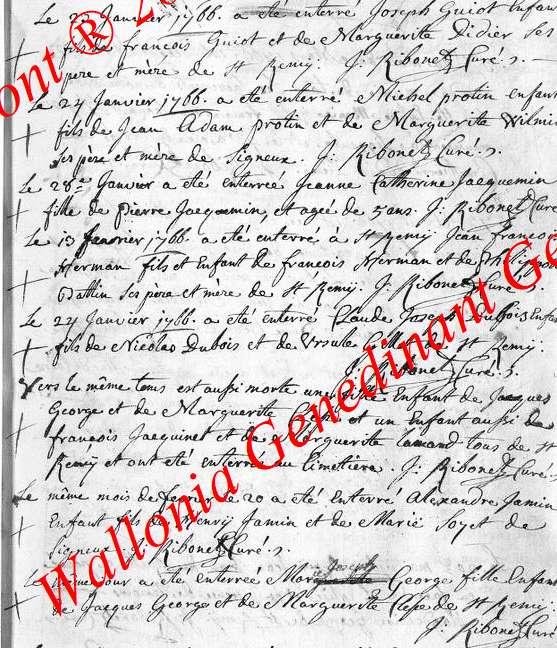 Le 2 Janvier 1766. a été enterré Joseph Guiot Enfant
fils de francois Guiot et de Marguerite Didier ses
pere et mère de St Remy. J: Ribonet Curé s.
Le 24 Janvier 1766. a été enterré Michel protin enfant
fils de Jean Adam protin et de Marguerite Wilmin
ses père et mère de Signeux. J: Ribonet Curé s.
Le 28e Janvier a été enterreé Jeanne Catherine Jacquemin
fille de Pierre Jacquemin et ageé de 5 ans. J: Ribonet Curé
Le 13 1766. a été enterré a St Remy Jean francois
Herman fils et Enfant de francois Herman et de
Dattin ses pere et mère de St Remy. J: Ribonet Curé
Le 24 Janvier 1766. a été enterré Claude Joseph Dubois Enfant
fils de Nicolas Dubois et de Ursule de St Remy.
J: Ribonet Curé s.
vers le même tems est aussi morte une Enfant de Jacques
George et de Marguerite et un Enfant aussi de
francois Jacquinet et de Marguerite tous de St
Remy et ont été enterré au Cimetiere. J: Ribonet Curé s.
Le même mois de fevrier le 20 a été enterré Alexandre Jamin
Enfant fils de Henry Jamin et de Marie Soyet de
Signeux. J: Ribonet Curé s.
Joseph
jour a été enterreé George fille Enfant
de Jacques George et de Marguerite de St Remy.
J: Ribonet Curé
ont ® 2
Wallonia Genedinant Ge